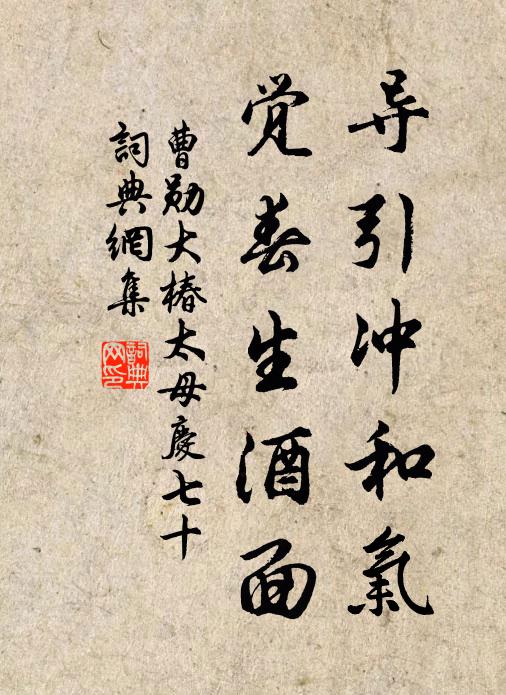 导引冲和氣
觉春生酒面
曹勋大椿太母慶七十
詞典網集
詞典网印